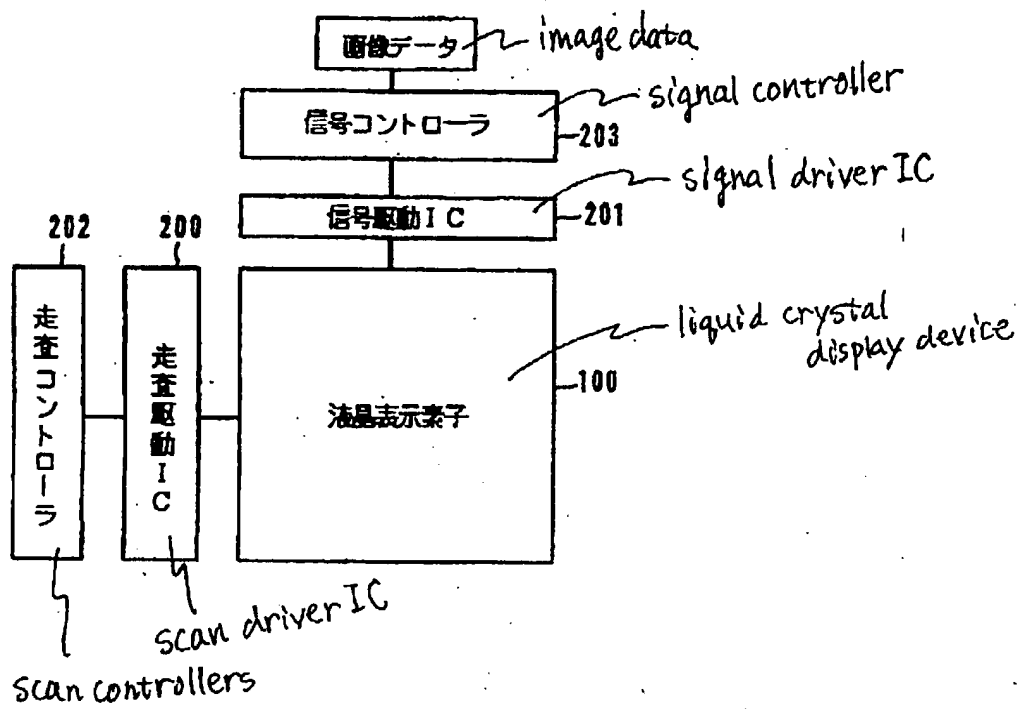 画像データ
image data
信号コントローラ
signal controller
203
信号駆動IC
signal driver IC
201
202
200
走査コントローラ
走査駆動IC
液晶表示素子
liquid crystal
display device
100
scan driver IC
scan controllers